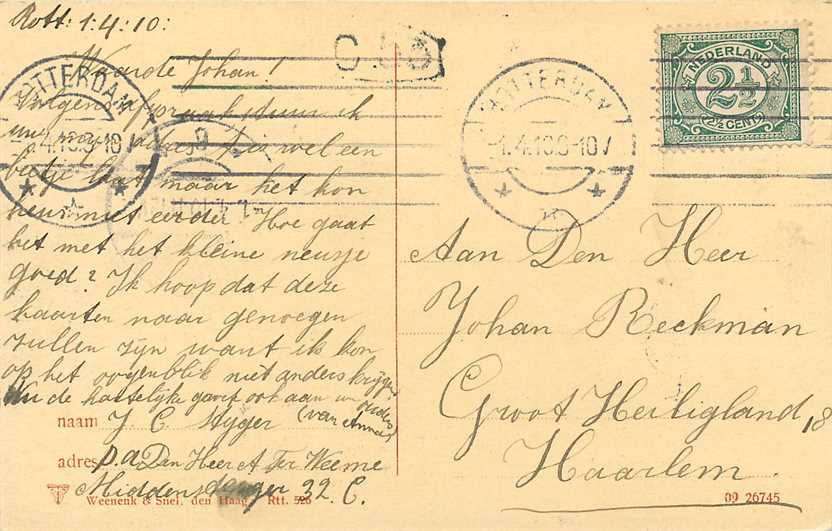 Rott: 1.4.10:
Waarde Johan!
Volgens afspraak stuur ik
uw mijn adres, 't is wel een
beetje laat maar het kon
heus niet eerder. Hoe gaat
het met het kleine neusje
goed? Ik hoop dat deze
kaarten naar genoegen
zullen zijn want ik kon
op het oogenblik niet anders krijgen
Nu de hartelijke groet ook aan uw ouders
(van Anna)
naam J C Styger
adres p.a Den Heer A Ter Weeme
22 C.
Weenenk & Snel, den Haag. Rtt. 526
C 55
ROTTERDAM
-1.4.10.8-10V
ROTTERDAM
-1.4.10.8-10V
NEDERLAND
2½
2½ CENT
Aan Den Heer
Johan Reekman
Groot Heiligland 18
Haarlem.
09 26745